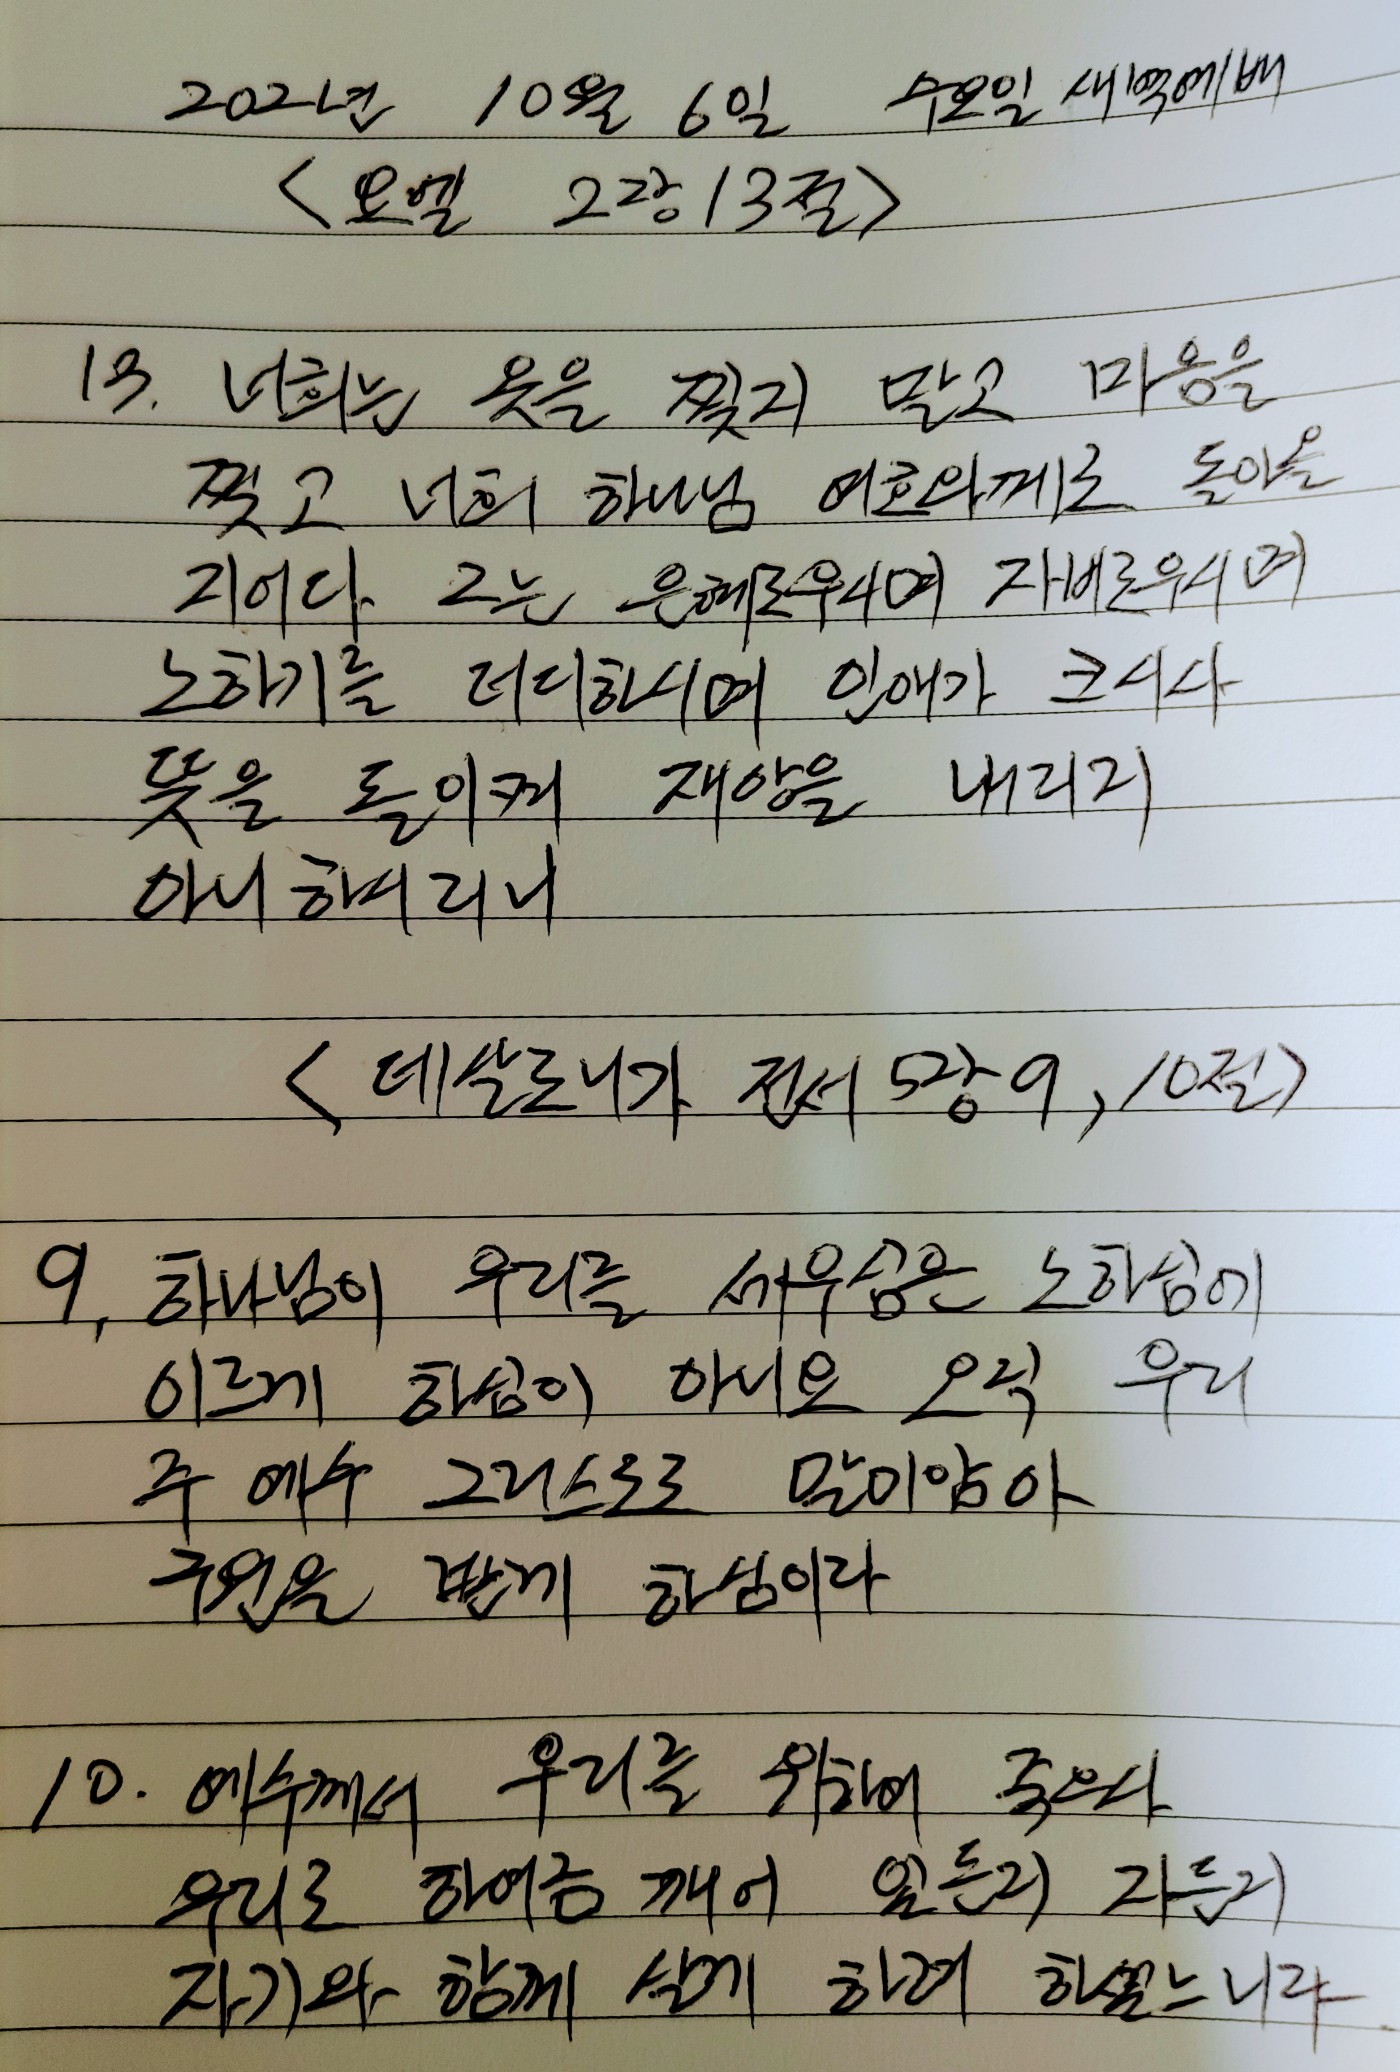 2021년 10월 6일 수요일 새벽예배
<요엘 2장 13절>
13. 너희는 옷을 찢지 말고 마음을
찢고 너희 하나님 여호와께로 돌아올
지어다. 그는 은혜로우시며 자비로우시며
노하기를 더디하시며 인애가 크시사
뜻을 돌이켜 재앙을 내리지
아니하시리니
<데살로니가 전서 5장 9, 10절>
9, 하나님이 우리를 세우심은 노하심에
이르게 하심이 아니요 오직 우리
주 예수 그리스도로 말미암아
구원을 받게 하심이라
10. 예수께서 우리를 위하여 죽으사
우리로 하여금 깨어 있든지 자든지
자기와 함께 살게 하려 하셨느니라.